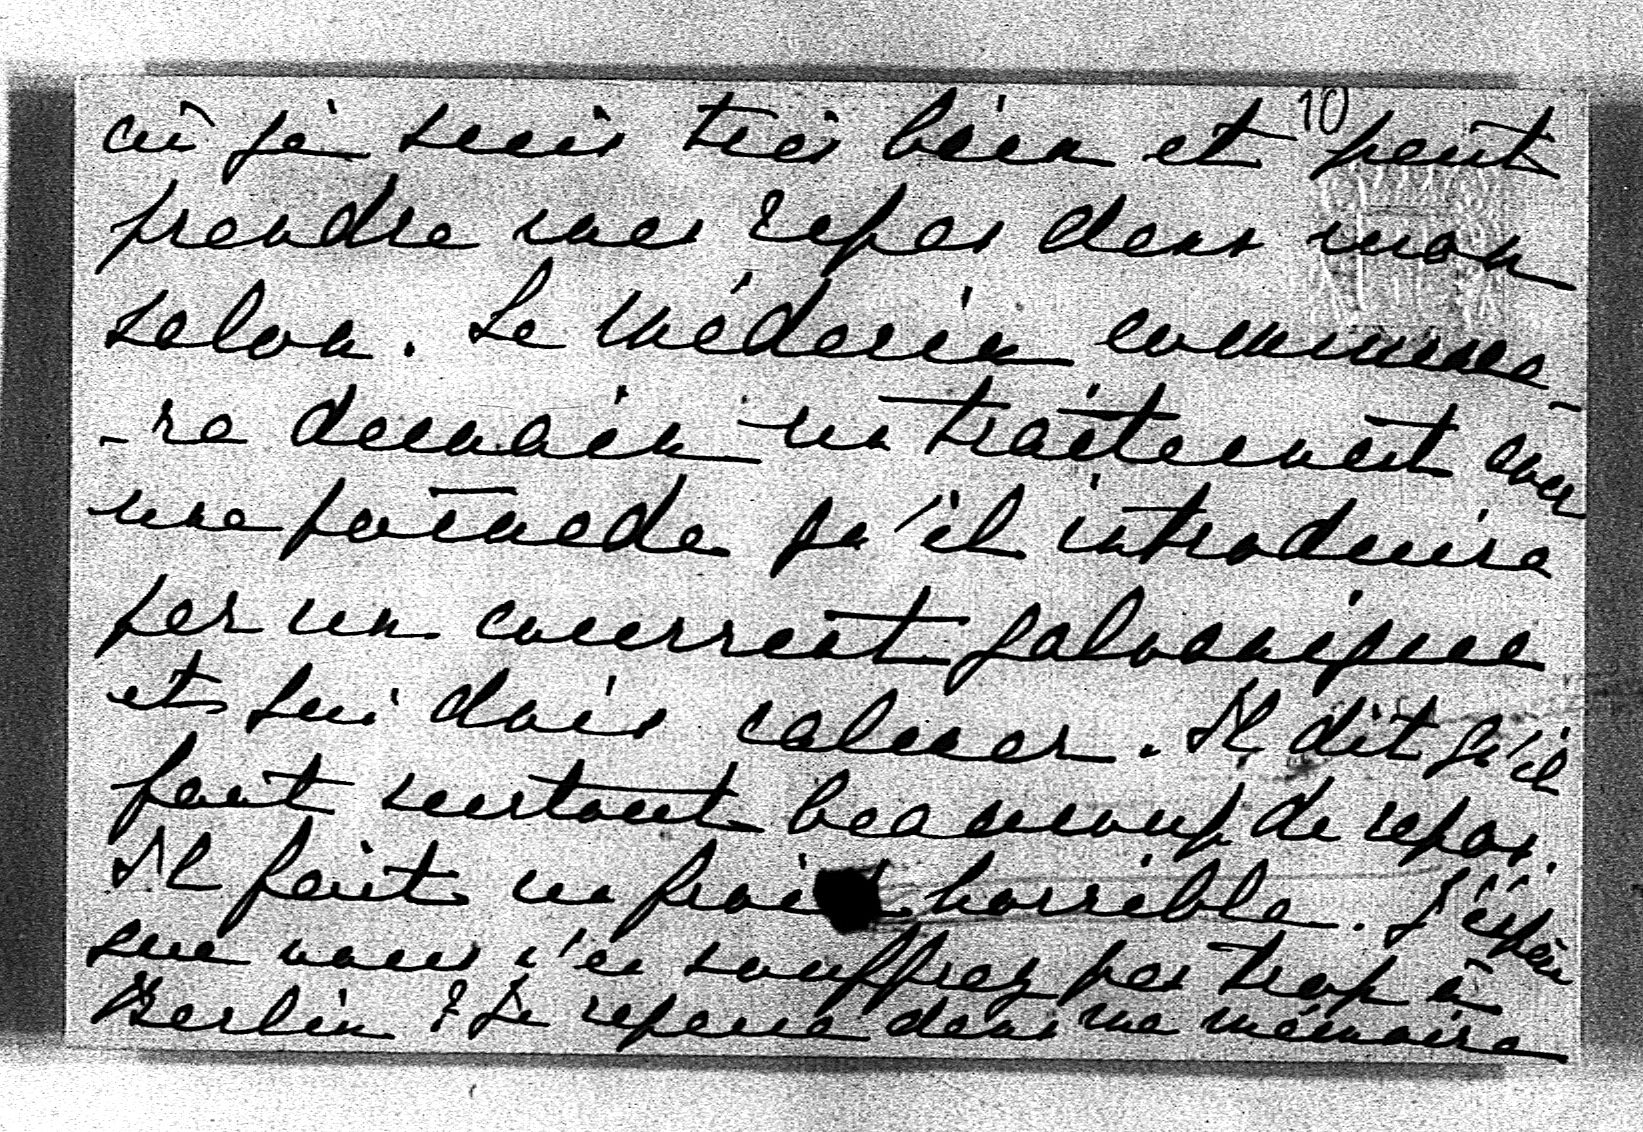 10
où je suis très bien et peut
prendre mes repas dans mon
salon. Le médecin commence-
-ra demain un traitement avec
une pomade qu'il introduira
par un courrent galvanique
et qui dois calmer. Il dit qu'il
faut surtout beaucoup de repos.
Il fait un froid horrible. J'espère
que vous n'en souffrez pas trop à
Berlin? Je repasse dans ma mémoire